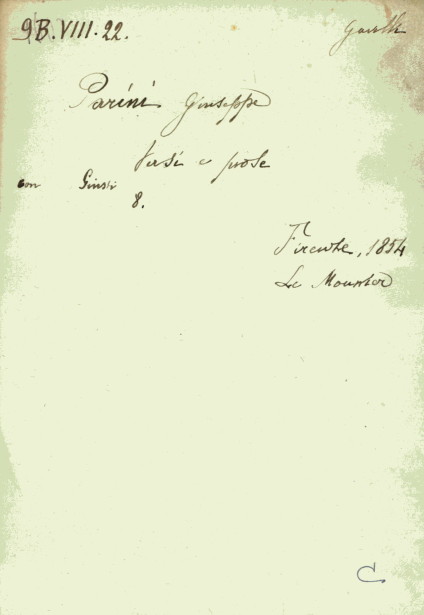 9B.VIII.22.
Parini Giuseppe
Versi e prose
con Giusti
8.
Firenze, 1854
Le Monnier
C